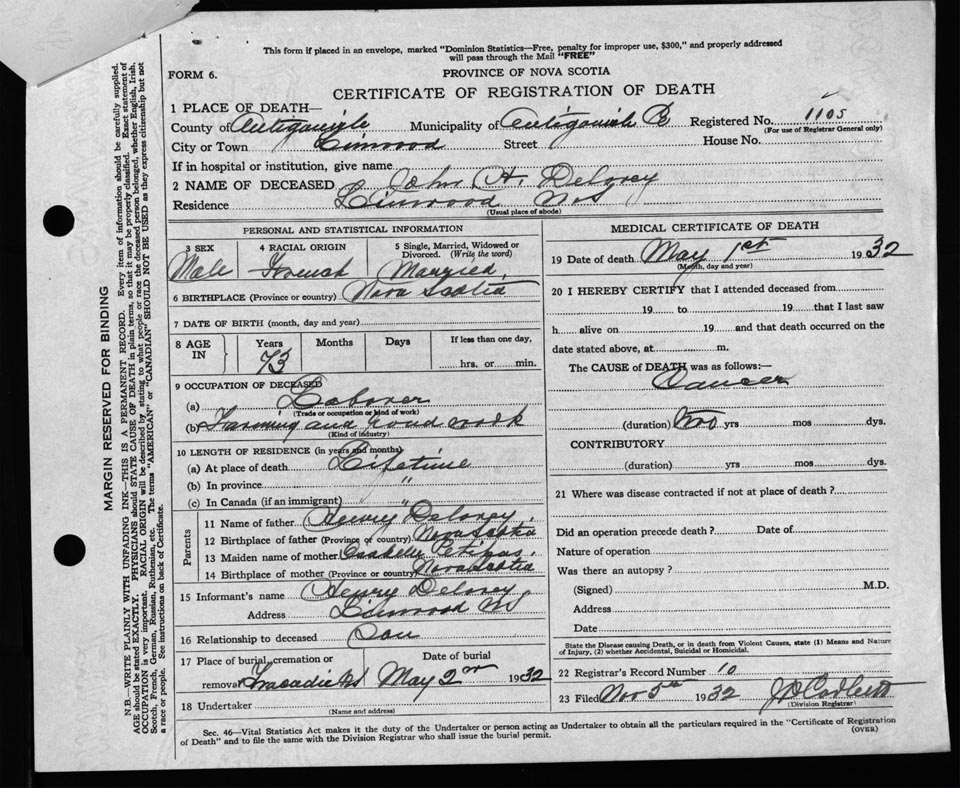 This form if placed in an envelope, marked "Dominion Statistics—Free, penalty for improper use, $300," and properly addressed
will pass through the Mail "FREE"
FORM 6.
PROVINCE OF NOVA SCOTIA
CERTIFICATE OF REGISTRATION OF DEATH
1 PLACE OF DEATH—
County of Antigonish Municipality of Antigonish Co Registered No. 1105
(For use of Registrar General only)
City or Town Linwood Street House No.
If in hospital or institution, give name
2 NAME OF DECEASED John A. Delorey
Residence Linwood NS
(Usual place of abode)
PERSONAL AND STATISTICAL INFORMATION
3 SEX 4 RACIAL ORIGIN 5 Single, Married, Widowed or
Divorced. (Write the word)
Male French Married,
6 BIRTHPLACE (Province or country) Nova Scotia
7 DATE OF BIRTH (month, day and year)
8 AGE IN Years Months Days If less than one day,
73 hrs. or min.
9 OCCUPATION OF DECEASED
(a) Laborer
(Trade or occupation or kind of work)
(b) Farming and road work
(Kind of industry)
10 LENGTH OF RESIDENCE (in years and months)
(a) At place of death Lifetime
(b) In province "
(c) In Canada (if an immigrant) "
Parents
11 Name of father Henry Delorey,
12 Birthplace of father (Province or country) Nova Scotia
13 Maiden name of mother Isabelle Petipas,
14 Birthplace of mother (Province or country) Nova Scotia
15 Informant's name Henry Delorey
Address Linwood NS
16 Relationship to deceased Son
17 Place of burial, cremation or Date of burial
removal Tracadie NS May 2nd 1932
18 Undertaker
(Name and address)
MEDICAL CERTIFICATE OF DEATH
19 Date of death May 1st 1932
(Month, day and year)
20 I HEREBY CERTIFY that I attended deceased from
19 to 19 that I last saw
h alive on 19 and that death occurred on the
date stated above, at m.
The CAUSE of DEATH was as follows:—
Cancer
(duration) Two yrs mos dys.
CONTRIBUTORY
(duration) yrs mos dys.
21 Where was disease contracted if not at place of death?
Did an operation precede death? Date of
Nature of operation
Was there an autopsy?
(Signed) M.D.
Address
Date
State the Disease causing Death, or in death from Violent Causes, state (1) Means and Nature
of Injury, (2) whether Accidental, Suicidal or Homicidal.
22 Registrar's Record Number 10
23 Filed Nov 5th 1932
(Division Registrar)
Sec. 46—Vital Statistics Act makes it the duty of the Undertaker or person acting as Undertaker to obtain all the particulars required in the "Certificate of Registration
of Death" and to file the same with the Division Registrar who shall issue the burial permit.
(OVER)
MARGIN RESERVED FOR BINDING
N.B.—WRITE PLAINLY WITH UNFADING INK—THIS IS A PERMANENT RECORD. Every item of information should be carefully supplied.
AGE should be stated EXACTLY. PHYSICIANS should STATE CAUSE OF DEATH in plain terms, so that it may be properly classified. Exact statement of
OCCUPATION is very important. RACIAL ORIGIN will be described by stating to what people or race the deceased person belonged, whether English, Irish,
Scotch, French, German, Russian, Ruthenian, etc. The terms "AMERICAN" or "CANADIAN" SHOULD NOT BE USED as they express citizenship but not
a race or people. See instructions on back of Certificate.